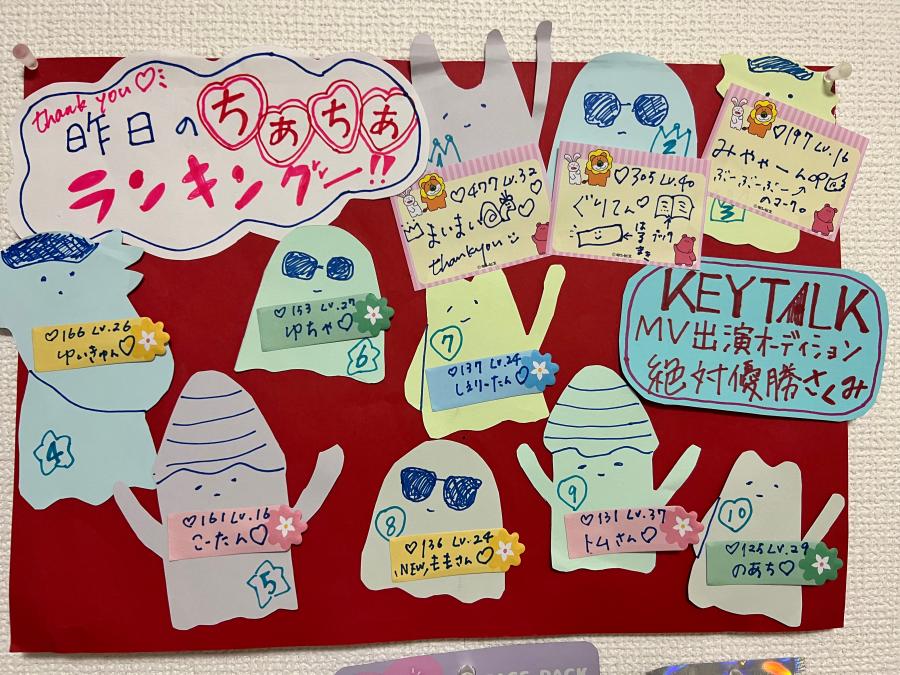 thank you♡
昨日のちぁちぁ
ランキングー!!
1
♡477 Lv.32
まいまい
thankyou
2
♡305 Lv.40
ぐりてん♡
はるまき
ブック
♡197 Lv.16
みゃゃーん
ぶーぶーぶー
のマーク。
3
KEYTALK
MV出演オーディション
絶対優勝さくみ
♡166 Lv.26
ゆぃきゅん♡
4
♡153 Lv.27
ゆちゃ♡
6
7
♡137 Lv.24
しえりーたん♡
♡161 Lv.16
こーたん♡
5
8
♡136 Lv.24
NEW ももさん♡
9
♡131 Lv.37
トムさん♡
10
♡125 Lv.29
のあち♡